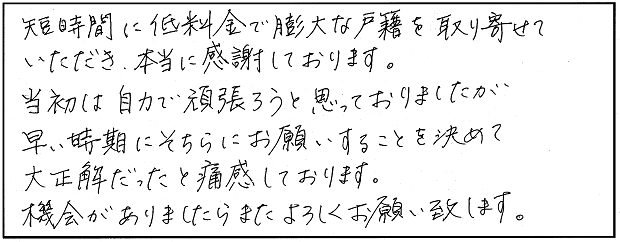 短時間に低料金で膨大な戸籍を取り寄せて
いただき、本当に感謝しております。
当初は自力で頑張ろうと思っておりましたが
早い時期にそちらにお願いすることを決めて
大正解だったと痛感しております。
機会がありましたらまたよろしくお願い致します。